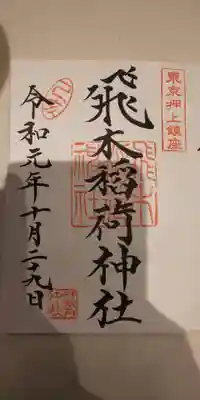 東京押上鎮座
飛木稲荷神社
令和元年十月二九日